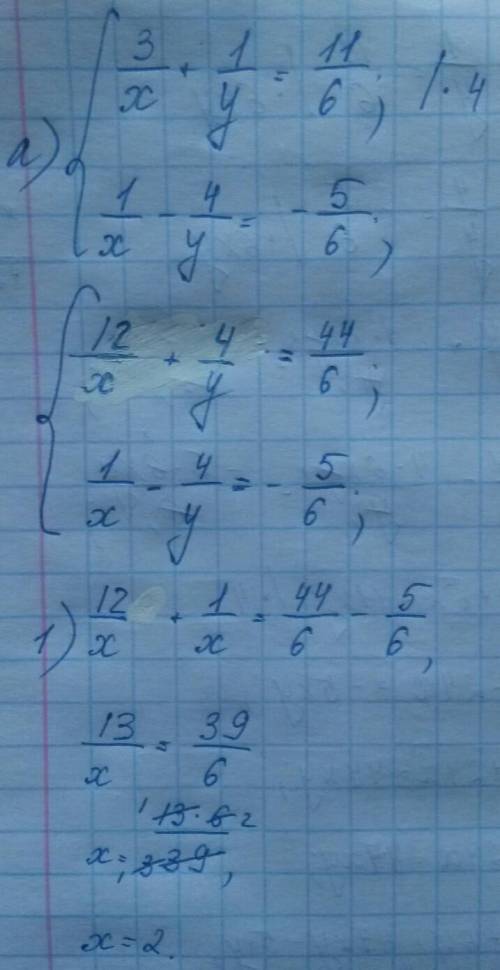 а) { 3/x + 1/y = 11/6; | · 4
1/x - 4/y = - 5/6;
{ 12/x + 4/y = 44/6;
1/x - 4/y = - 5/6;
1) 12/x + 1/x = 44/6 - 5/6,
13/x = 39/6
x = 1 13 · 6 2 / 3 39,
x = 2.